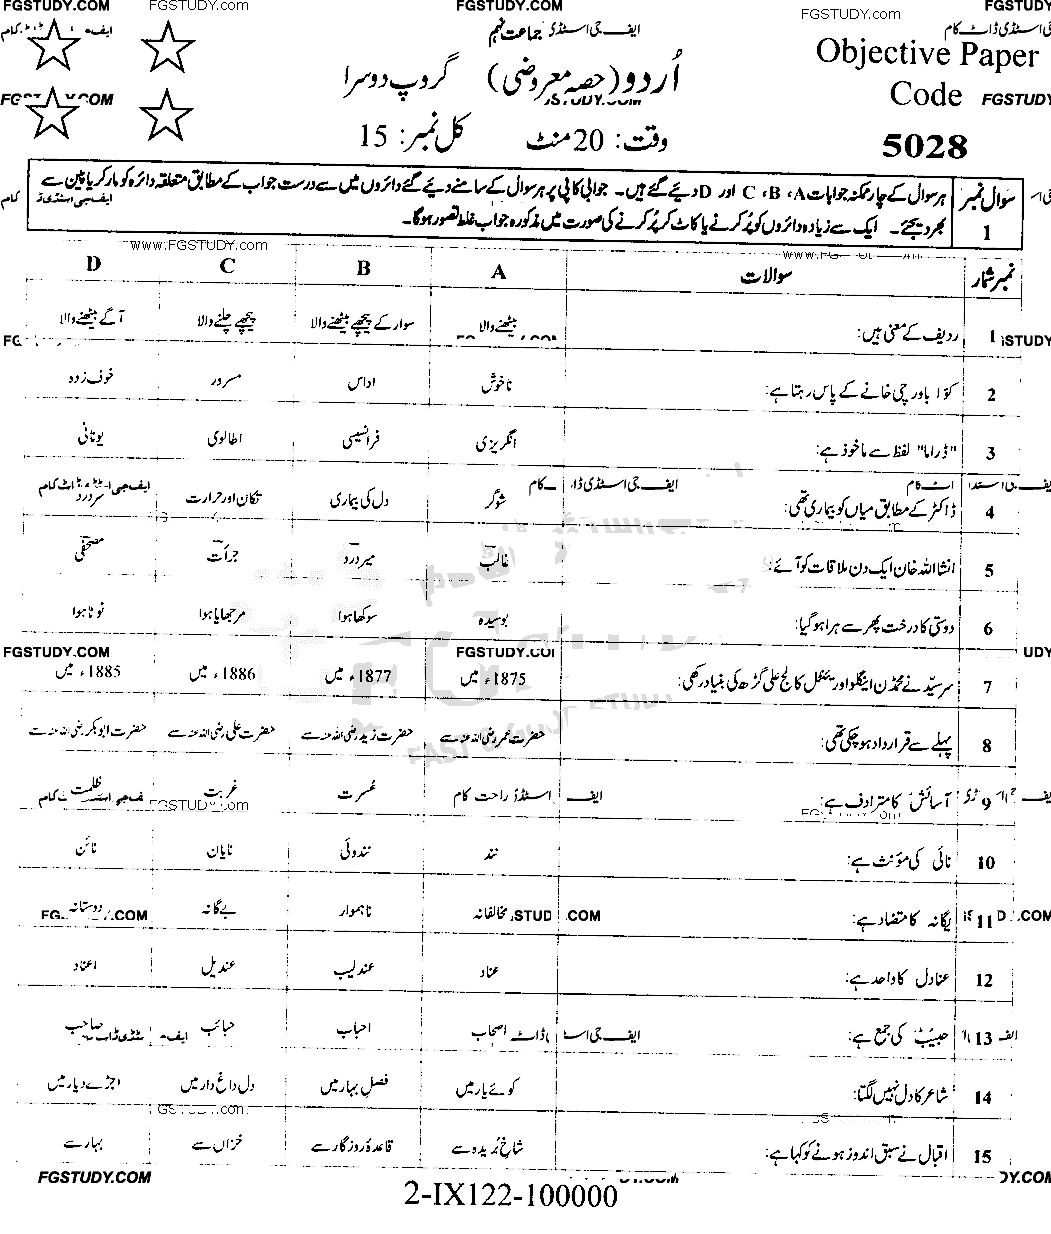 FGSTUDY.COM FGSTUDY.COM FGSTUDY.COM FGSTUDY.com
ایف جی اسٹڈی ڈاٹ کام
جماعت نہم
اُردو (حصہ معروضی) گروپ دوسرا
Objective Paper
Code
FGSTUDY
وقت: 20 منٹ کل نمبر: 15
5028
سوال نمبر 1
ہر سوال کے چار ممکنہ جوابات A، B، C اور D دیئے گئے ہیں۔ جوابی کاپی پر ہر سوال کے سامنے دیئے گئے دائروں میں سے درست جواب کے مطابق متعلقہ دائرہ کو مارکر یا پین سے
بھر دیجئے۔ ایک سے زیادہ دائروں کو پُر کرنے یا کاٹ کر پُر کرنے کی صورت میں مذکورہ جواب غلط تصور ہوگا۔
www.FGSTUDY.com
نمبر شمار سوالات A B C D
1 ردیف کے معنی ہیں: بیٹھنے والا سوار کے پیچھے بیٹھنے والا پیچھے چلنے والا آگے بیٹھنے والا
2 کوّا باورچی خانے کے پاس رہتا ہے: ناخوش اداس مسرور خوف زدہ
3 "ڈراما" لفظ سے ماخوذ ہے: انگریزی فرانسیسی اطالوی یونانی
4 ڈاکٹر کے مطابق میاں کو بیماری تھی: شوگر دل کی بیماری تکان اور حرارت سر درد
5 انشا اللہ خان ایک دن ملاقات کو آئے: غالب میر درد جرأت مصحفی
6 دوستی کا درخت پھر سے ہرا ہو گیا: بوسیدہ سوکھا ہوا مرجھایا ہوا ٹوٹا ہوا
FGSTUDY.COM FGSTUDY.COM
7 سرسیّد نے محمڈن اینگلو اورینٹل کالج علی گڑھ کی بنیاد رکھی: 1875ء میں 1877ء میں 1886ء میں 1885ء میں
8 پہلے سے قرارداد ہو چکی تھی: حضرت عمر رضی اللہ عنہ سے حضرت زید رضی اللہ عنہ سے حضرت علی رضی اللہ عنہ سے حضرت ابوبکر رضی اللہ عنہ سے
9 آسائش کا مترادف ہے: راحت عُسرت غربت ظلمت
10 نائی کی مؤنث ہے: نند نندوئی نایان نائن
11 یگانہ کا متضاد ہے: مخالفانہ ناہموار بے گانہ دوستانہ
12 عنادل کا واحد ہے: عناد عندلیب عندیل اعناد
13 حبیب کی جمع ہے: اصحاب احباب حبائب صاحب
14 شاعر کا دل نہیں لگتا: کوئے یار میں فصلِ بہار میں دل داغ دار میں اجڑے دیار میں
15 اقبال نے سبق اندوز ہونے کو کہا ہے: شاخِ بُریدہ سے قاعدۂ روزگار سے خزاں سے بہار سے
FGSTUDY.COM
2-IX122-100000